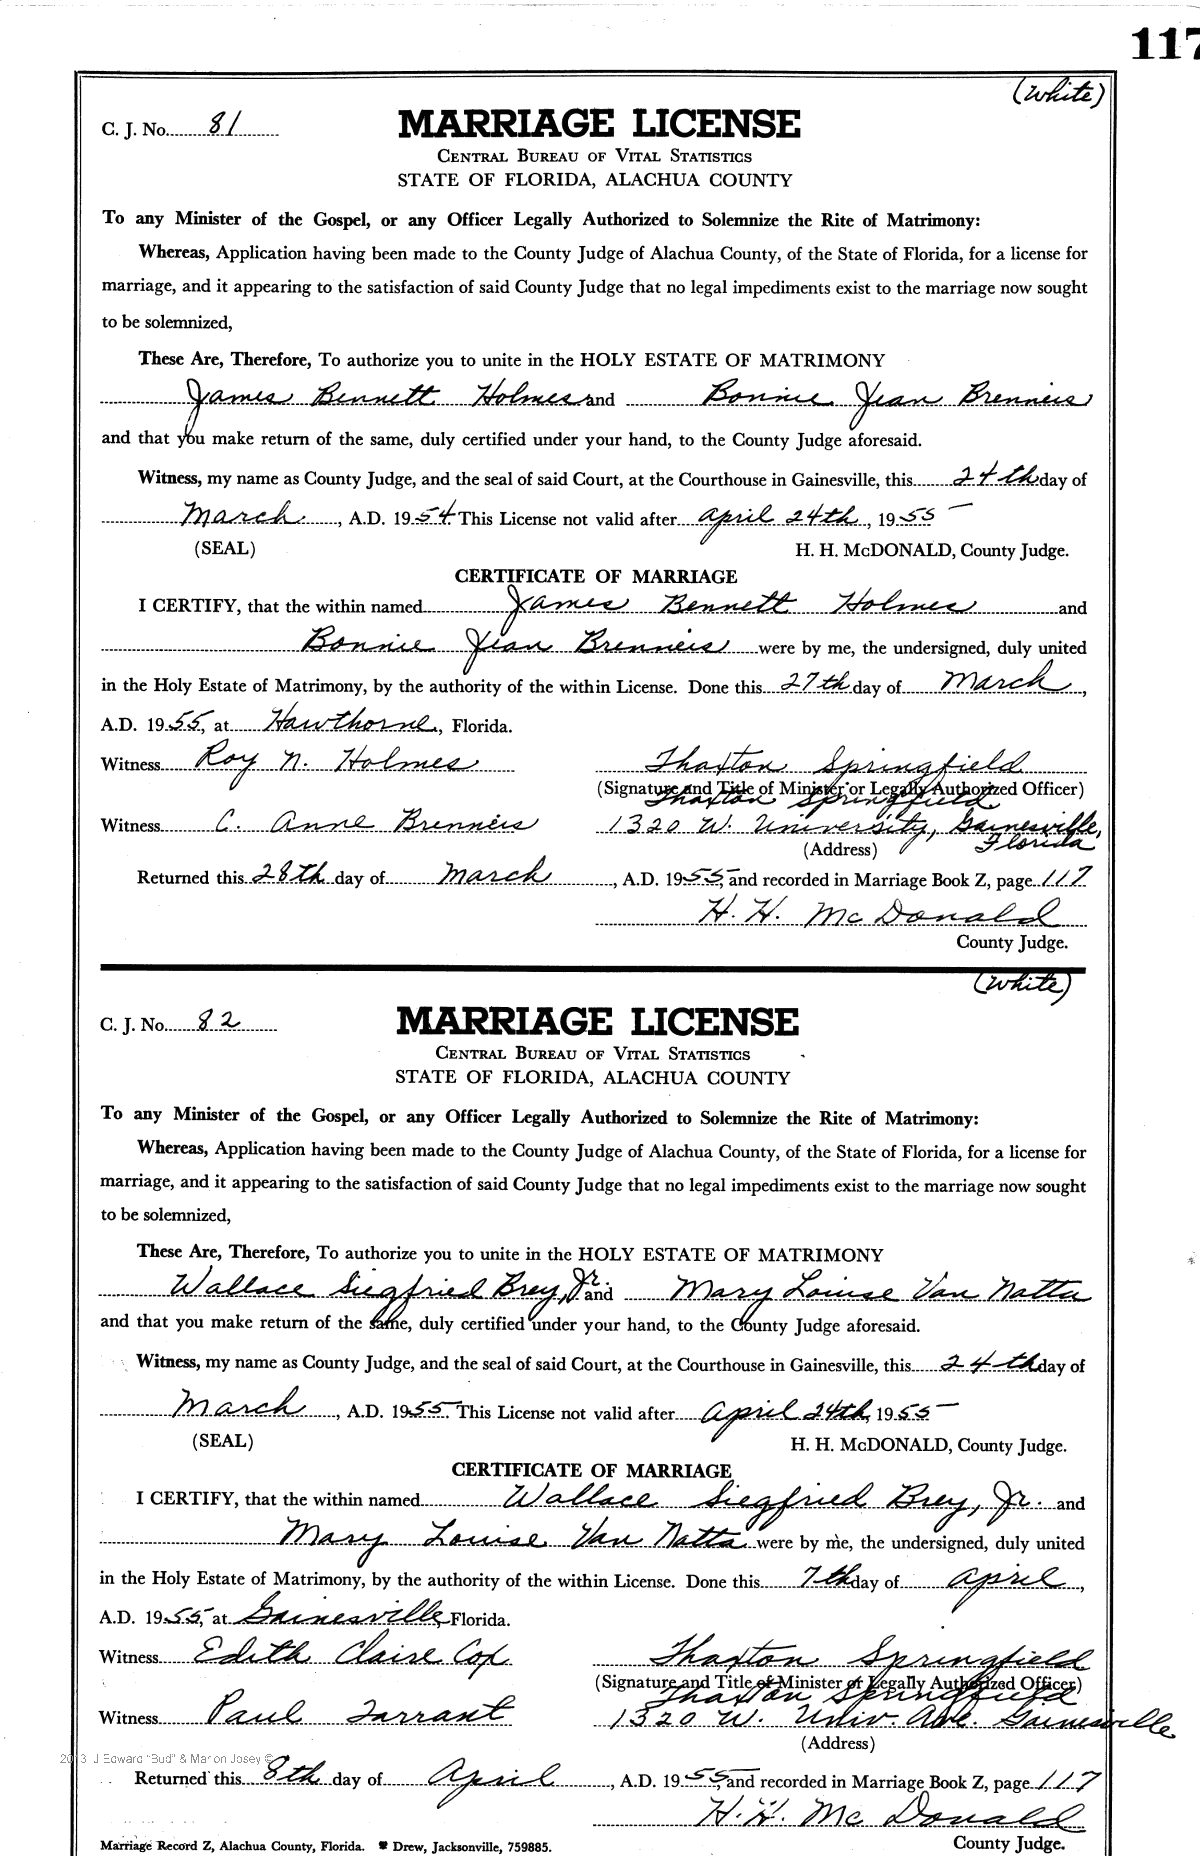 117
(White)
C. J. No. 81
MARRIAGE LICENSE
CENTRAL BUREAU OF VITAL STATISTICS
STATE OF FLORIDA, ALACHUA COUNTY
To any Minister of the Gospel, or any Officer Legally Authorized to Solemnize the Rite of Matrimony:
Whereas, Application having been made to the County Judge of Alachua County, of the State of Florida, for a license for
marriage, and it appearing to the satisfaction of said County Judge that no legal impediments exist to the marriage now sought
to be solemnized,
These Are, Therefore, To authorize you to unite in the HOLY ESTATE OF MATRIMONY
James Bennett Holmes and Bonnie Jean Brenneis
and that you make return of the same, duly certified under your hand, to the County Judge aforesaid.
Witness, my name as County Judge, and the seal of said Court, at the Courthouse in Gainesville, this 24th day of
March, A.D. 1954. This License not valid after April 24th, 1955
(SEAL) H. H. McDONALD, County Judge.
CERTIFICATE OF MARRIAGE
I CERTIFY, that the within named James Bennett Holmes and
Bonnie Jean Brenneis were by me, the undersigned, duly united
in the Holy Estate of Matrimony, by the authority of the within License. Done this 27th day of March,
A.D. 1955, at Hawthorne, Florida.
Witness Roy N. Holmes Thaxton Springfield
(Signature and Title of Minister or Legally Authorized Officer)
Thaxton Springfield
Witness C. Anne Brenneis 1320 W. University, Gainesville,
Florida
(Address)
Returned this 28th day of March, A.D. 1955, and recorded in Marriage Book Z, page 117
H. H. McDonald
County Judge.
(White)
C. J. No. 82
MARRIAGE LICENSE
CENTRAL BUREAU OF VITAL STATISTICS
STATE OF FLORIDA, ALACHUA COUNTY
To any Minister of the Gospel, or any Officer Legally Authorized to Solemnize the Rite of Matrimony:
Whereas, Application having been made to the County Judge of Alachua County, of the State of Florida, for a license for
marriage, and it appearing to the satisfaction of said County Judge that no legal impediments exist to the marriage now sought
to be solemnized,
These Are, Therefore, To authorize you to unite in the HOLY ESTATE OF MATRIMONY
Wallace Siegfried Brey, Jr. and Mary Louise Van Natta
and that you make return of the same, duly certified under your hand, to the County Judge aforesaid.
Witness, my name as County Judge, and the seal of said Court, at the Courthouse in Gainesville, this 24th day of
March, A.D. 1955. This License not valid after April 24th, 1955
(SEAL) H. H. McDONALD, County Judge.
CERTIFICATE OF MARRIAGE
I CERTIFY, that the within named Wallace Siegfried Brey, Jr. and
Mary Louise Van Natta were by me, the undersigned, duly united
in the Holy Estate of Matrimony, by the authority of the within License. Done this 7th day of April,
A.D. 1955, at Gainesville, Florida.
Witness Edith Claire Cox Thaxton Springfield
(Signature and Title of Minister or Legally Authorized Officer)
Thaxton Springfield
Witness Paul Tarrant 1320 W. Univ. Ave. Gainesville
(Address)
2013 J Edward "Bud" & Marion Josey ©
Returned this 8th day of April, A.D. 1955, and recorded in Marriage Book Z, page 117
H. H. McDonald
County Judge.
Marriage Record Z, Alachua County, Florida. Drew, Jacksonville, 759885.